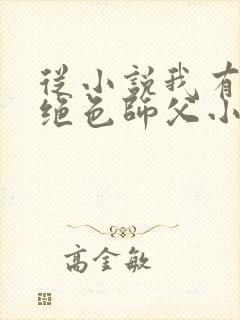 從小說我有
绝色師父小
高金敏